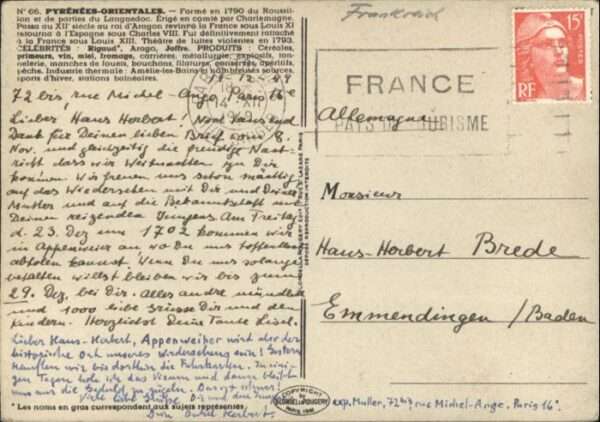 N° 66. PYRÉNÉES-ORIENTALES. — Formé en 1790 du Roussillon
et de parties du Languedoc. Érigé en comté par Charlemagne.
Passa au XIIe siècle au roi d'Aragon revint à la France sous Louis XI
retourna à l'Espagne sous Charles VIII. Fut définitivement rattaché
à la France sous Louis XIII. Théâtre de luttes violentes en 1793.
CÉLÉBRITÉS : Rigaud*, Arago, Joffre. PRODUITS : Céréales,
primeurs, vin, miel, fromage, carrières, métallurgie, explosifs, tonnellerie,
manches de fouets, bouchons, filatures, conserves, apéritifs,
pêche. Industrie thermale : Amélie-les-Bains et nombreuses sources,
sports d'hiver, stations balnéaires.
12.49
72 bis, rue Michel-Ange, Paris 16e
Lieber Hans Herbert! Nun
Dank für Deinen lieben Brief vom 8.
Nov. und gleichzeitig die freudige Nachricht
dass wir Weihnachten zu Dir
kommen. Wir freuen uns schon mächtig
auf das Wiedersehen mit Dir und Deiner
Mutter und auf die Bekanntschaft mit
Deinen reizenden Jungens. Am Freitag
d. 23. Dez um 1702 kommen wir
in Appenweier an wo Du uns hoffentlich
abholen kannst. Wenn Du uns solange
behalten willst bleiben wir bis zum
29. Dez. bei Dir. Alles andre mündlich
und 1000 liebe Grüsse Dir und den
Kindern. Herzlichst Deine Tante Lisel.
Lieber Hans-Herbert, Appenweier wird also der
historische Ort unseres Wiedersehens sein! Gestern
kauften wir bis dorthin die Fahrkarten. In einigen
Tagen hole ich das Visum und dann bleibt
uns nur die Geduld
Viele liebe Grüsse Dir und den
Dein Onkel Herbert
* Les noms en gras correspondant aux sujets représentés.
Frankreich
FRANCE
PAYS DU TOURISME
15F
RF
Allemagne
Monsieur
Hans-Herbert Brede
Emmendingen/Baden
COPYRIGHT
BY
BLONDEL LA ROUGERY
PARIS
exp. Muller, 72 bis, rue Michel-Ange, Paris 16e.